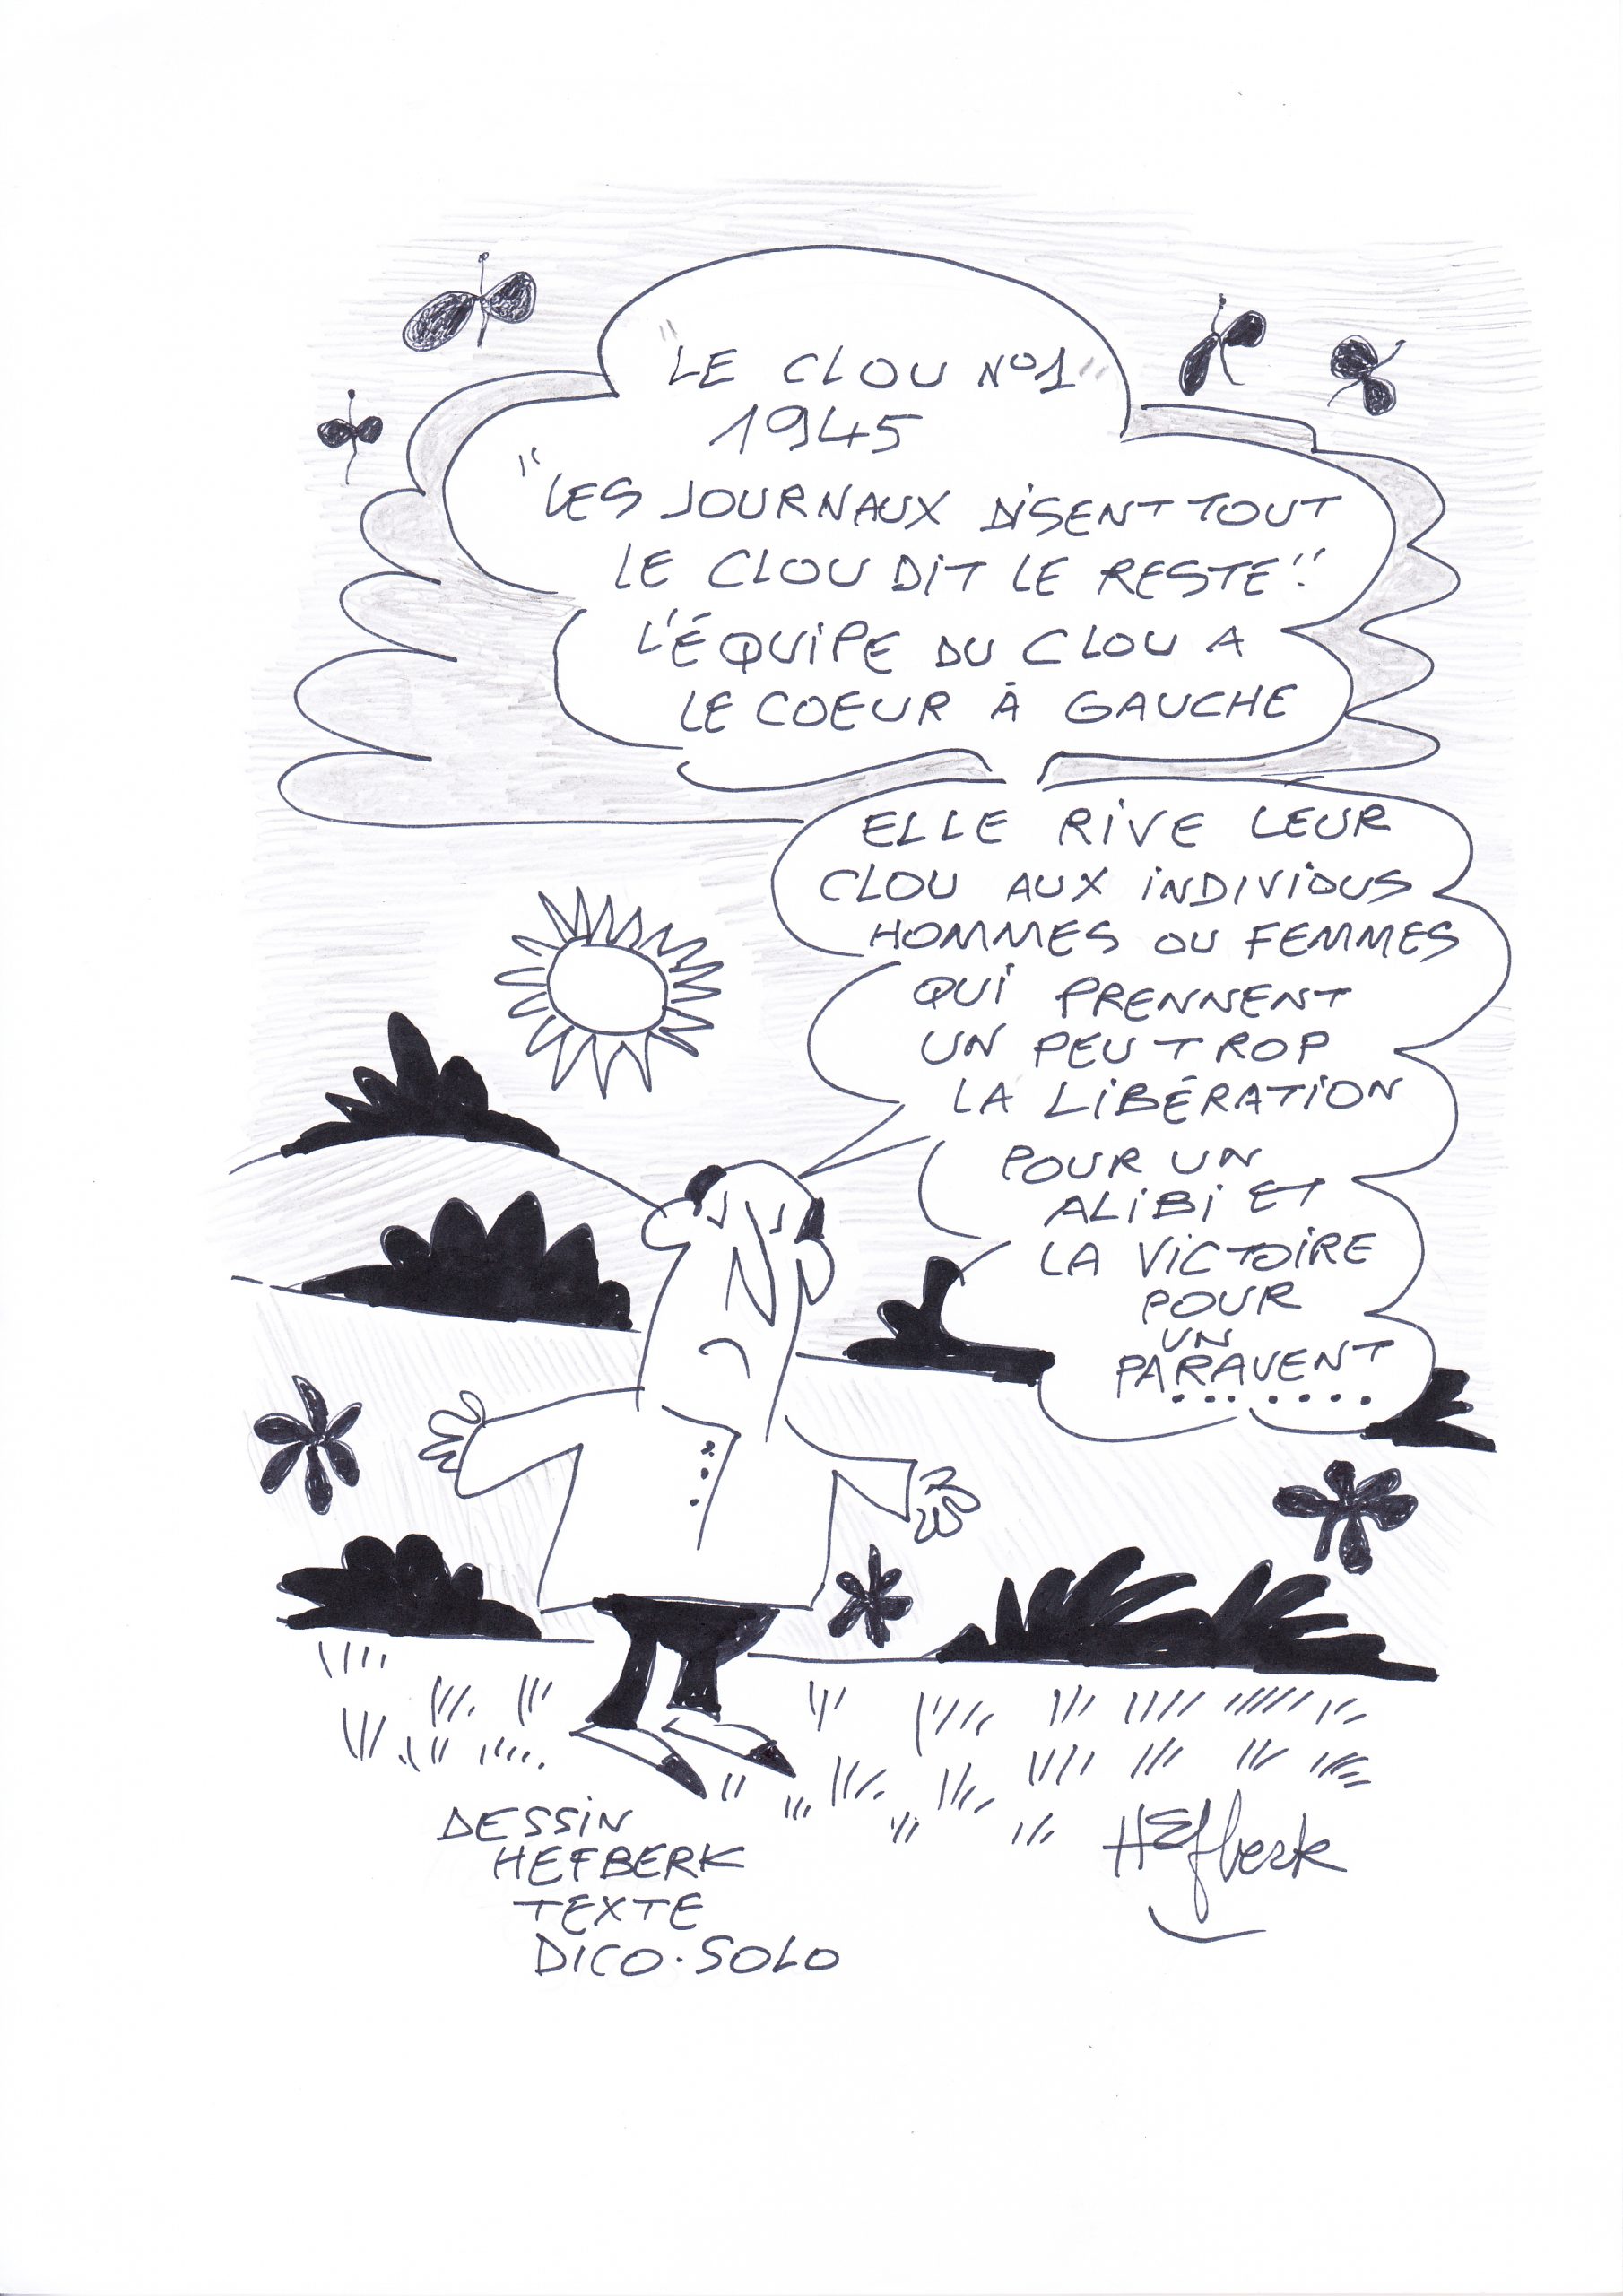 "LE CLOU N°1"
1945
"LES JOURNAUX DISENT TOUT
LE CLOU DIT LE RESTE"
L'ÉQUIPE DU CLOU A
LE COEUR À GAUCHE
ELLE RIVE LEUR
CLOU AUX INDIVIDUS
HOMMES OU FEMMES
QUI PRENNENT
UN PEU TROP
LA LIBÉRATION
POUR UN
ALIBI ET
LA VICTOIRE
POUR
UN
PARAVENT
.......
DESSIN
HEFBERK
TEXTE
DICO.SOLO
HEfberk